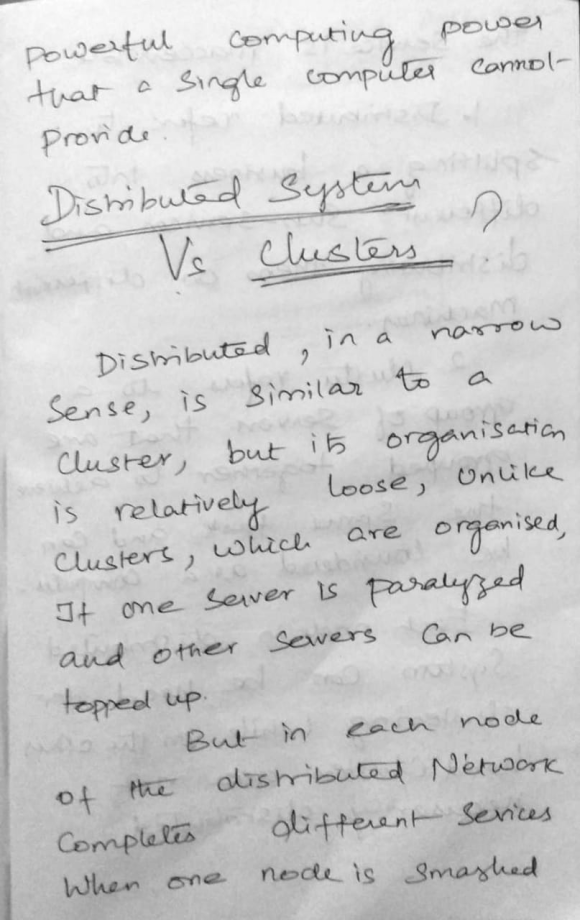 Powerful computing power
that a single computer cannot
provide.
Distributed System
Vs Clusters ?
Distributed, in a narrow
sense, is similar to a
cluster, but its organisation
is relatively loose, unlike
clusters, which are organised,
If one server is paralyzed
and other servers can be
topped up.
But in each node
of the distributed Network
completes different sevices
When one node is smashed